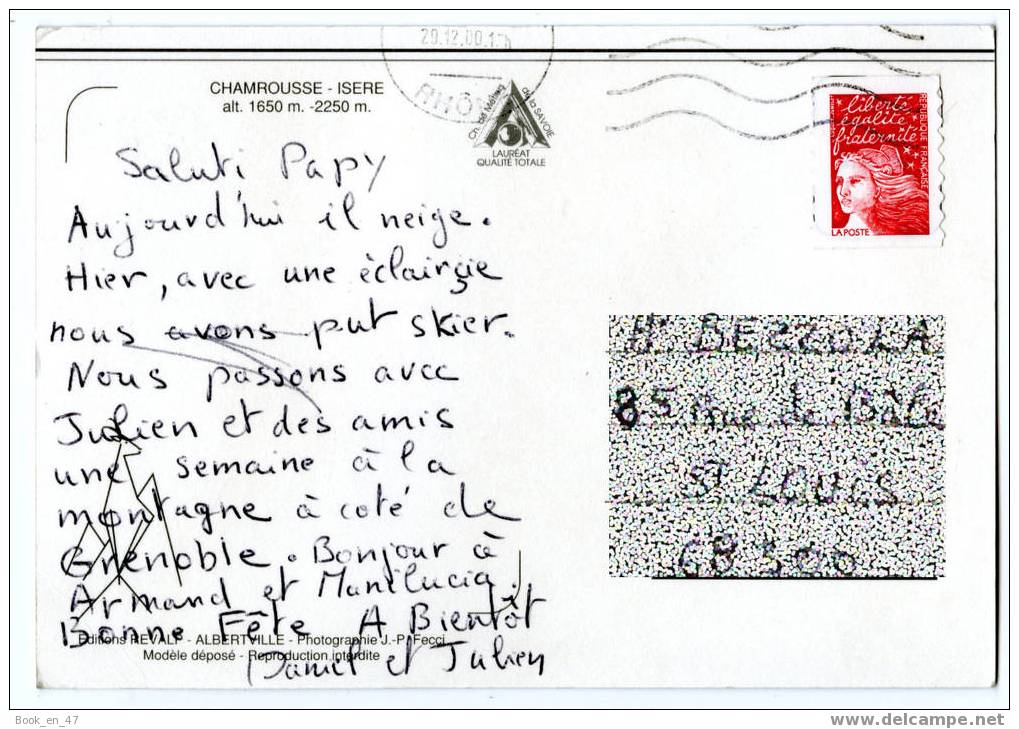 29.12.00
CHAMROUSSE - ISERE
alt. 1650 m. -2250 m.
RHÔ
Ch. de Métiers de la SAVOIE
LAURÉAT
QUALITÉ TOTALE
liberté
égalité
fraternité
RÉPUBLIQUE FRANÇAISE
LA POSTE
Saluti Papy
Aujourd'hui il neige.
Hier, avec une éclaircie
nous avons put skier.
Nous passons avec
Julien et des amis
une semaine à la
montagne à coté de
Grenoble. Bonjour à
Armand et Marilucia.
Bonne Fête A Bientôt
Daniel et Julien
Editions REVALP - ALBERTVILLE - Photographie J.-P. Fecci
Modèle déposé - Reproduction interdite
85 rue de
St Louis
Book_en_47
www.delcampe.net